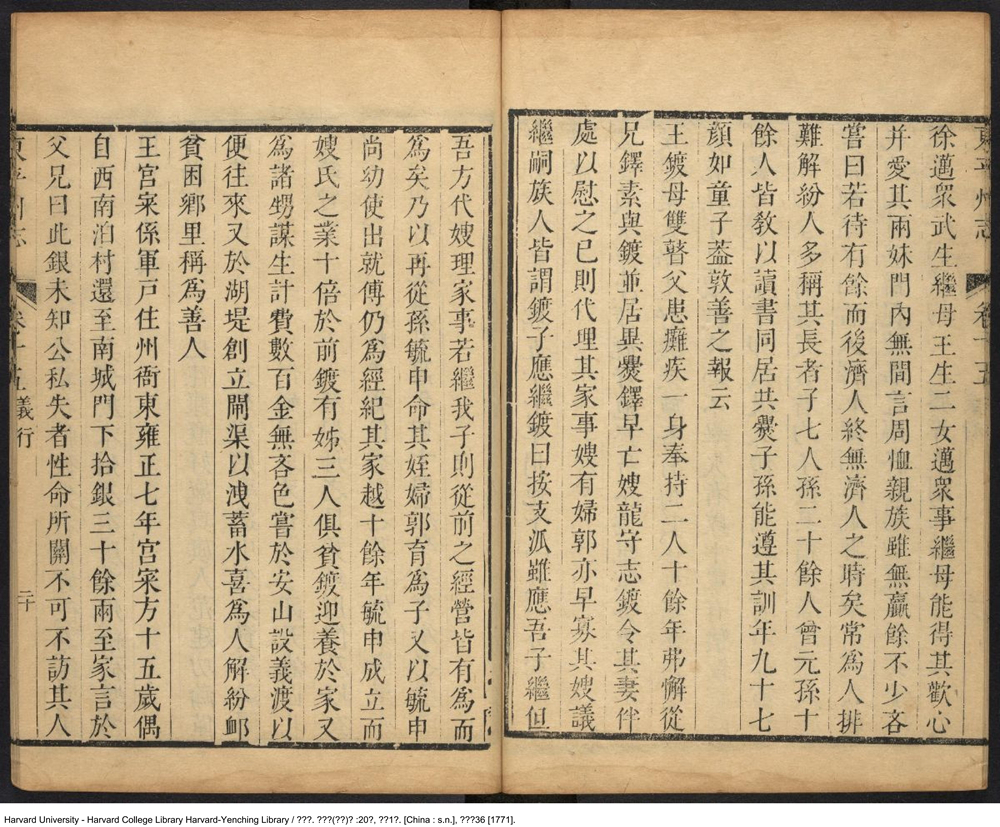 東平州志 卷十五
徐邁眾武生繼母王生二女邁眾事繼母能得其歡心
并愛其兩妹門內無間言周恤親族雖無贏餘不少吝
嘗曰若待有餘而後濟人終無濟人之時矣常為人排
難解紛人多稱其長者子七人孫二十餘人曾元孫十
餘人皆教以讀書同居共爨子孫能遵其訓年九十七
顏如童子葢敦善之報云
王鍍母雙瞽父患癱疾一身奉持二人十餘年弗懈從
兄鐸素與鍍並居異爨鐸早亡嫂龍守志鍍令其妻伴
處以慰之已則代理其家事嫂有婦郭亦早寡其嫂議
繼嗣族人皆謂鍍子應繼鍍曰按支派雖應吾子繼但
吾方代嫂理家事若繼我子則從前之經營皆有為而
為矣乃以再從孫毓申命其姪婦郭育為子又以毓申
尚幼使出就傅仍為經紀其家越十餘年毓申成立而
嫂氏之業十倍於前鍍有姊三人俱貧鍍迎養於家又
為諸甥謀生計費數百金無吝色嘗於安山設義渡以
便往來又於湖堤創立閘渠以洩蓄水喜為人解紛卹
貧困鄉里稱為善人
王宮寀係軍戶住州衙東雍正七年宮寀方十五歲偶
自西南泊村還至南城門下拾銀三十餘兩至家言於
父兄曰此銀未知公私失者性命所關不可不訪其人
東平州志 卷十五 義行 二十
Harvard University - Harvard College Library Harvard-Yenching Library / ???. ???(??)? :20?, ??1?. [China : s.n.], ???36 [1771].